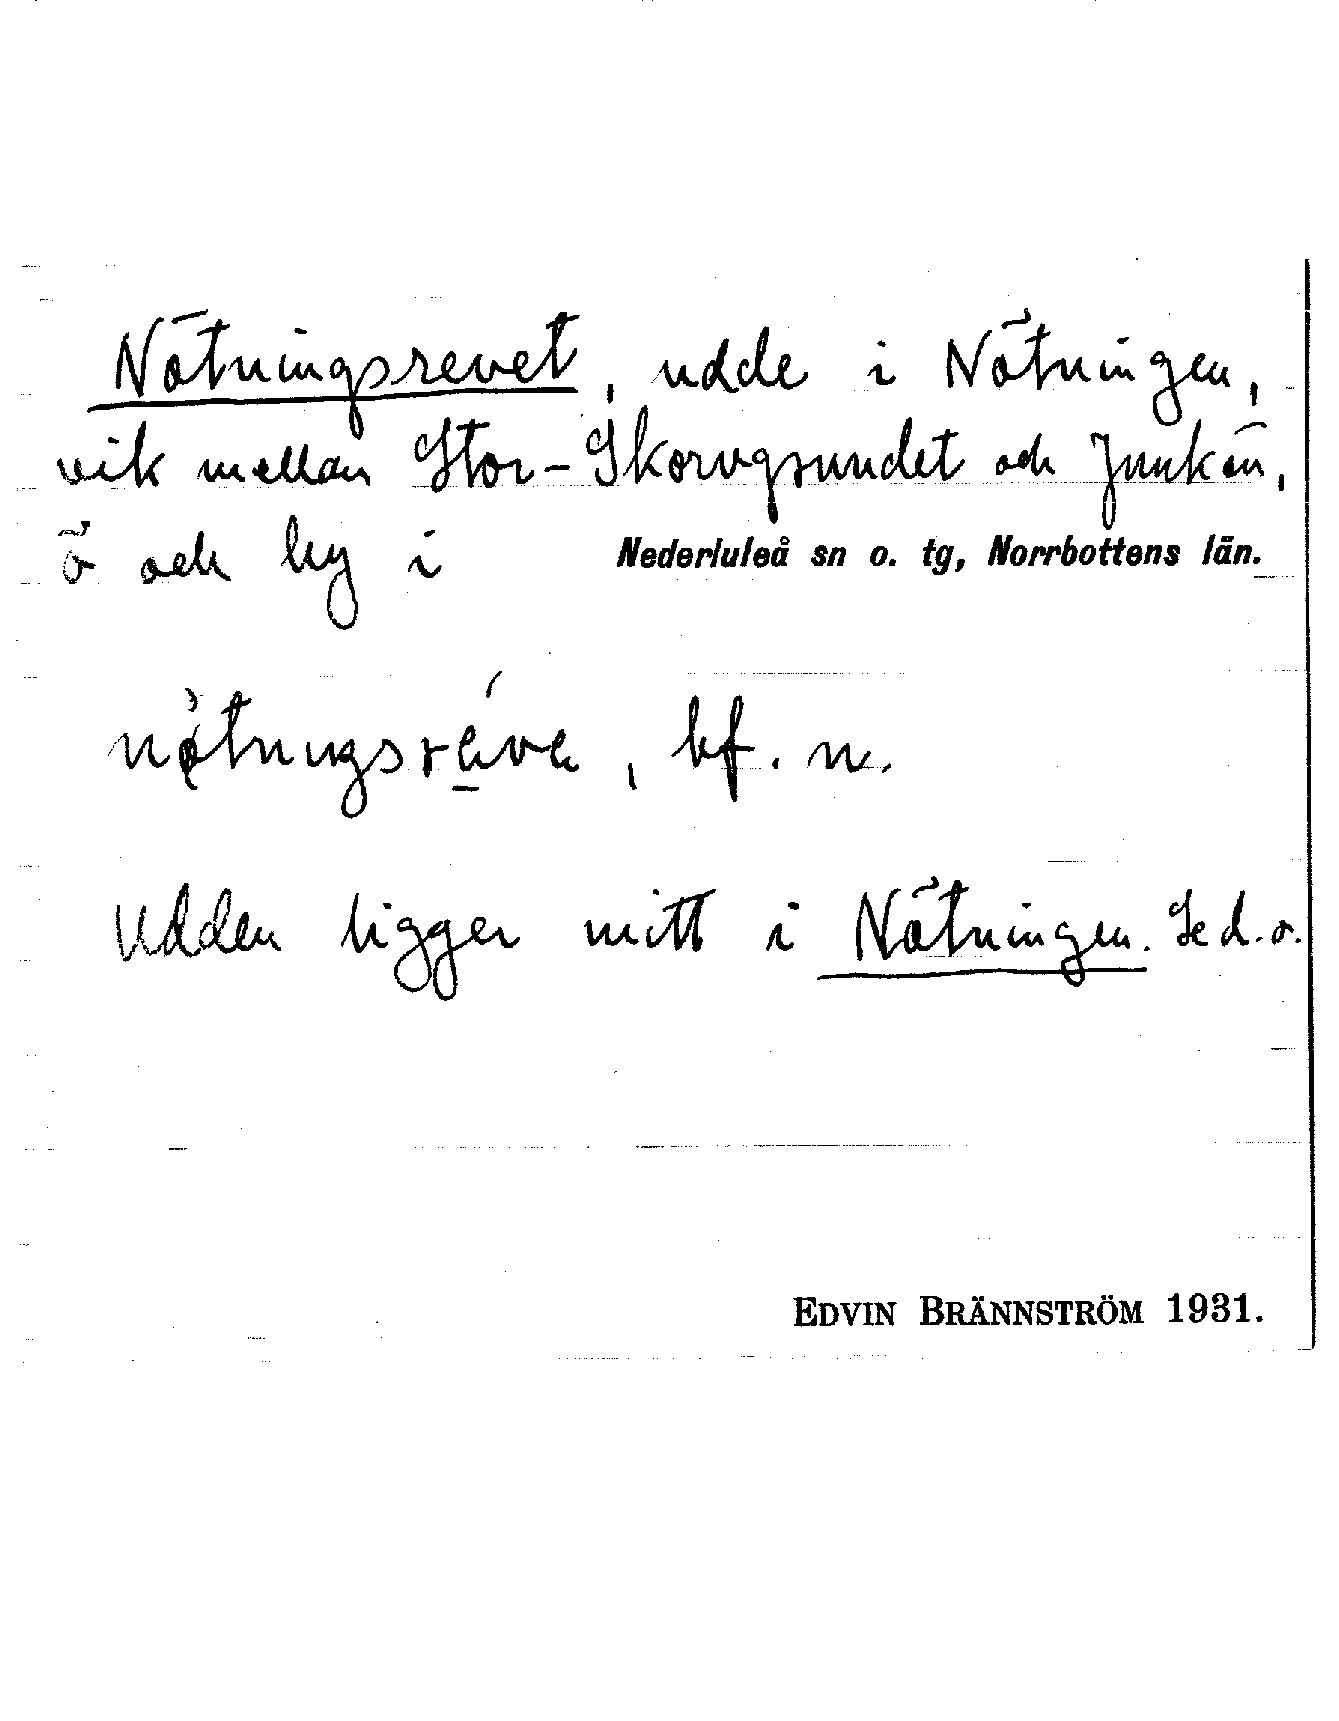 Nötningsrevet, udde i Nötningen,
vik mellan Stor-Skorvgsundet och Junkön,
ö och by i Nederluleå sn o. tg, Norrbottens län.
bf. n.
Udden ligger mitt i Nötningen. Se d. o.
EDVIN BRÄNNSTRÖM 1931.